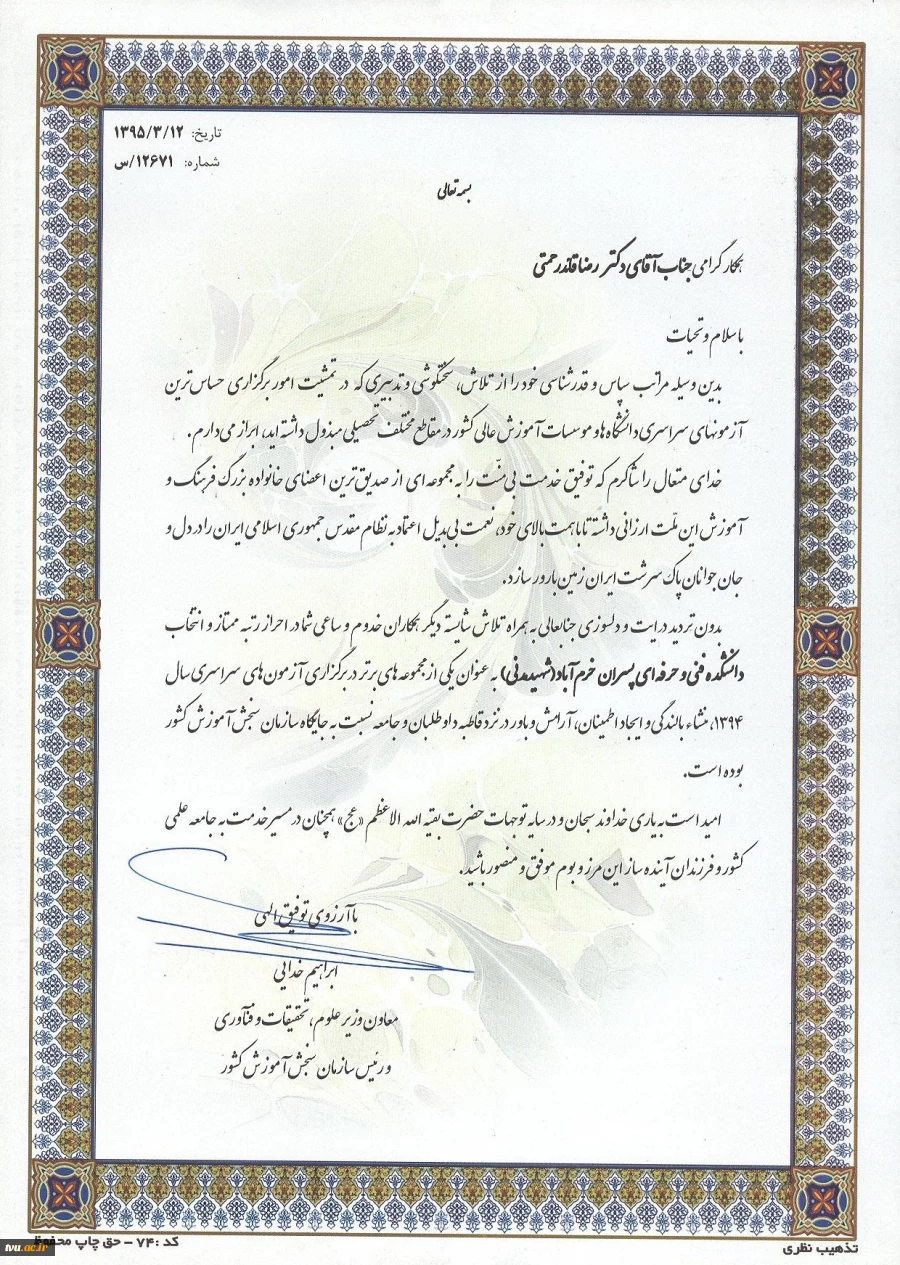 تاریخ: ۱۳۹۵/۳/۱۲
شماره: ۱۲۶۷۱/س
بسمه تعالی
همکار گرامی جناب آقای دکتر رضا قائدرحمتی
با سلام و تحیات
بدین وسیله مراتب سپاس و قدرشناسی خود را از تلاش، سختکوشی و تدبیری که در تمشیت امور برگزاری حساس ترین
آزمونهای سراسری دانشگاه ها و موسسات آموزش عالی کشور در مقاطع مختلف تحصیلی مبذول داشته اید، ابراز می دارم.
خدای متعال را شاکرم که توفیق خدمت بی منّت را به مجموعه ای از صدیق ترین اعضای خانواده بزرگ فرهنگ و
آموزش این ملّت ارزانی داشته تا با همت بالای خود، نعمت بی بدیل اعتماد به نظام مقدس جمهوری اسلامی ایران را در دل و
جان جوانان پاک سرشت ایران زمین بارور سازد.
بدون تردید درایت و دلسوزی جنابعالی به همراه تلاش شایسته دیگر همکاران خدوم و ساعی شما در احراز رتبه ممتاز و انتخاب
دانشکده فنی و حرفه ای پسران خرم آباد(شهیدمدنی) به عنوان یکی از مجموعه های برتر در برگزاری آزمون های سراسری سال
۱۳۹۴، منشاء بالندگی و ایجاد اطمینان، آرامش و باور در نزد قاطبه داوطلبان و جامعه نسبت به جایگاه سازمان سنجش آموزش کشور
بوده است.
امید است به یاری خداوند سبحان و در سایه توجهات حضرت بقیه الله الاعظم «عج» همچنان در مسیر خدمت به جامعه علمی
کشور و فرزندان آینده ساز این مرز و بوم موفق و منصور باشید.
با آرزوی توفیق الهی
ابراهیم خدایی
معاون وزیر علوم، تحقیقات و فنّاوری
و رئیس سازمان سنجش آموزش کشور
تذهیب نظری
کد :۷۴ - حق چاپ محفوظ
tvu.ac.ir